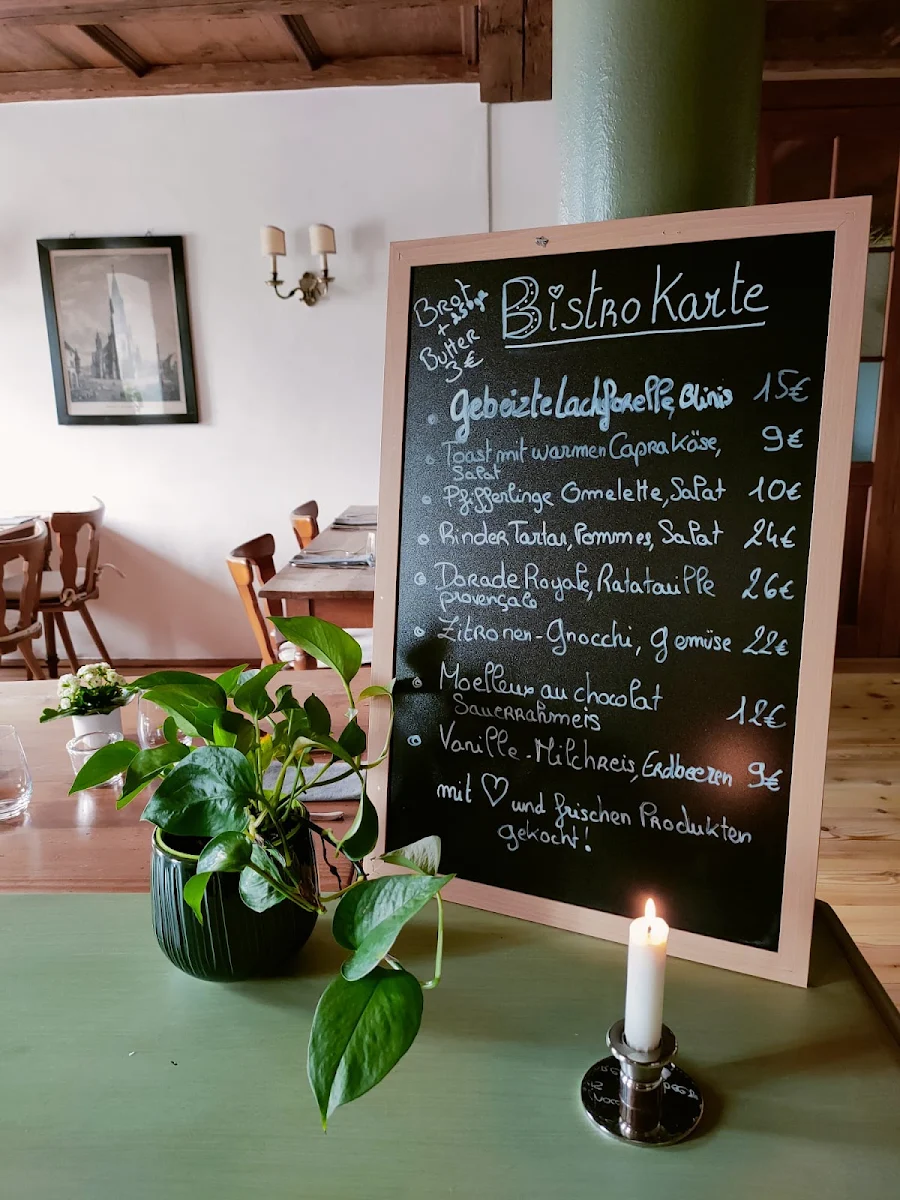 Brot
+ 250gr
Butter
3€
Bistro Karte
gebeizte Lachforelle, Blinis 15€
Toast mit warmen Capra Käse, 9€
Salat
Pfifferlinge Omelette, Salat 10€
Rinder Tartar, Pommes, Salat 24€
Dorade Royale, Ratatouille 26€
provençale
Zitronen-Gnocchi, Gemüse 22€
Moelleux au chocolat
Sauerrahmeis 12€
Vanille-Milchreis, Erdbeeren 9€
mit ♡ und frischen Produkten
gekocht!